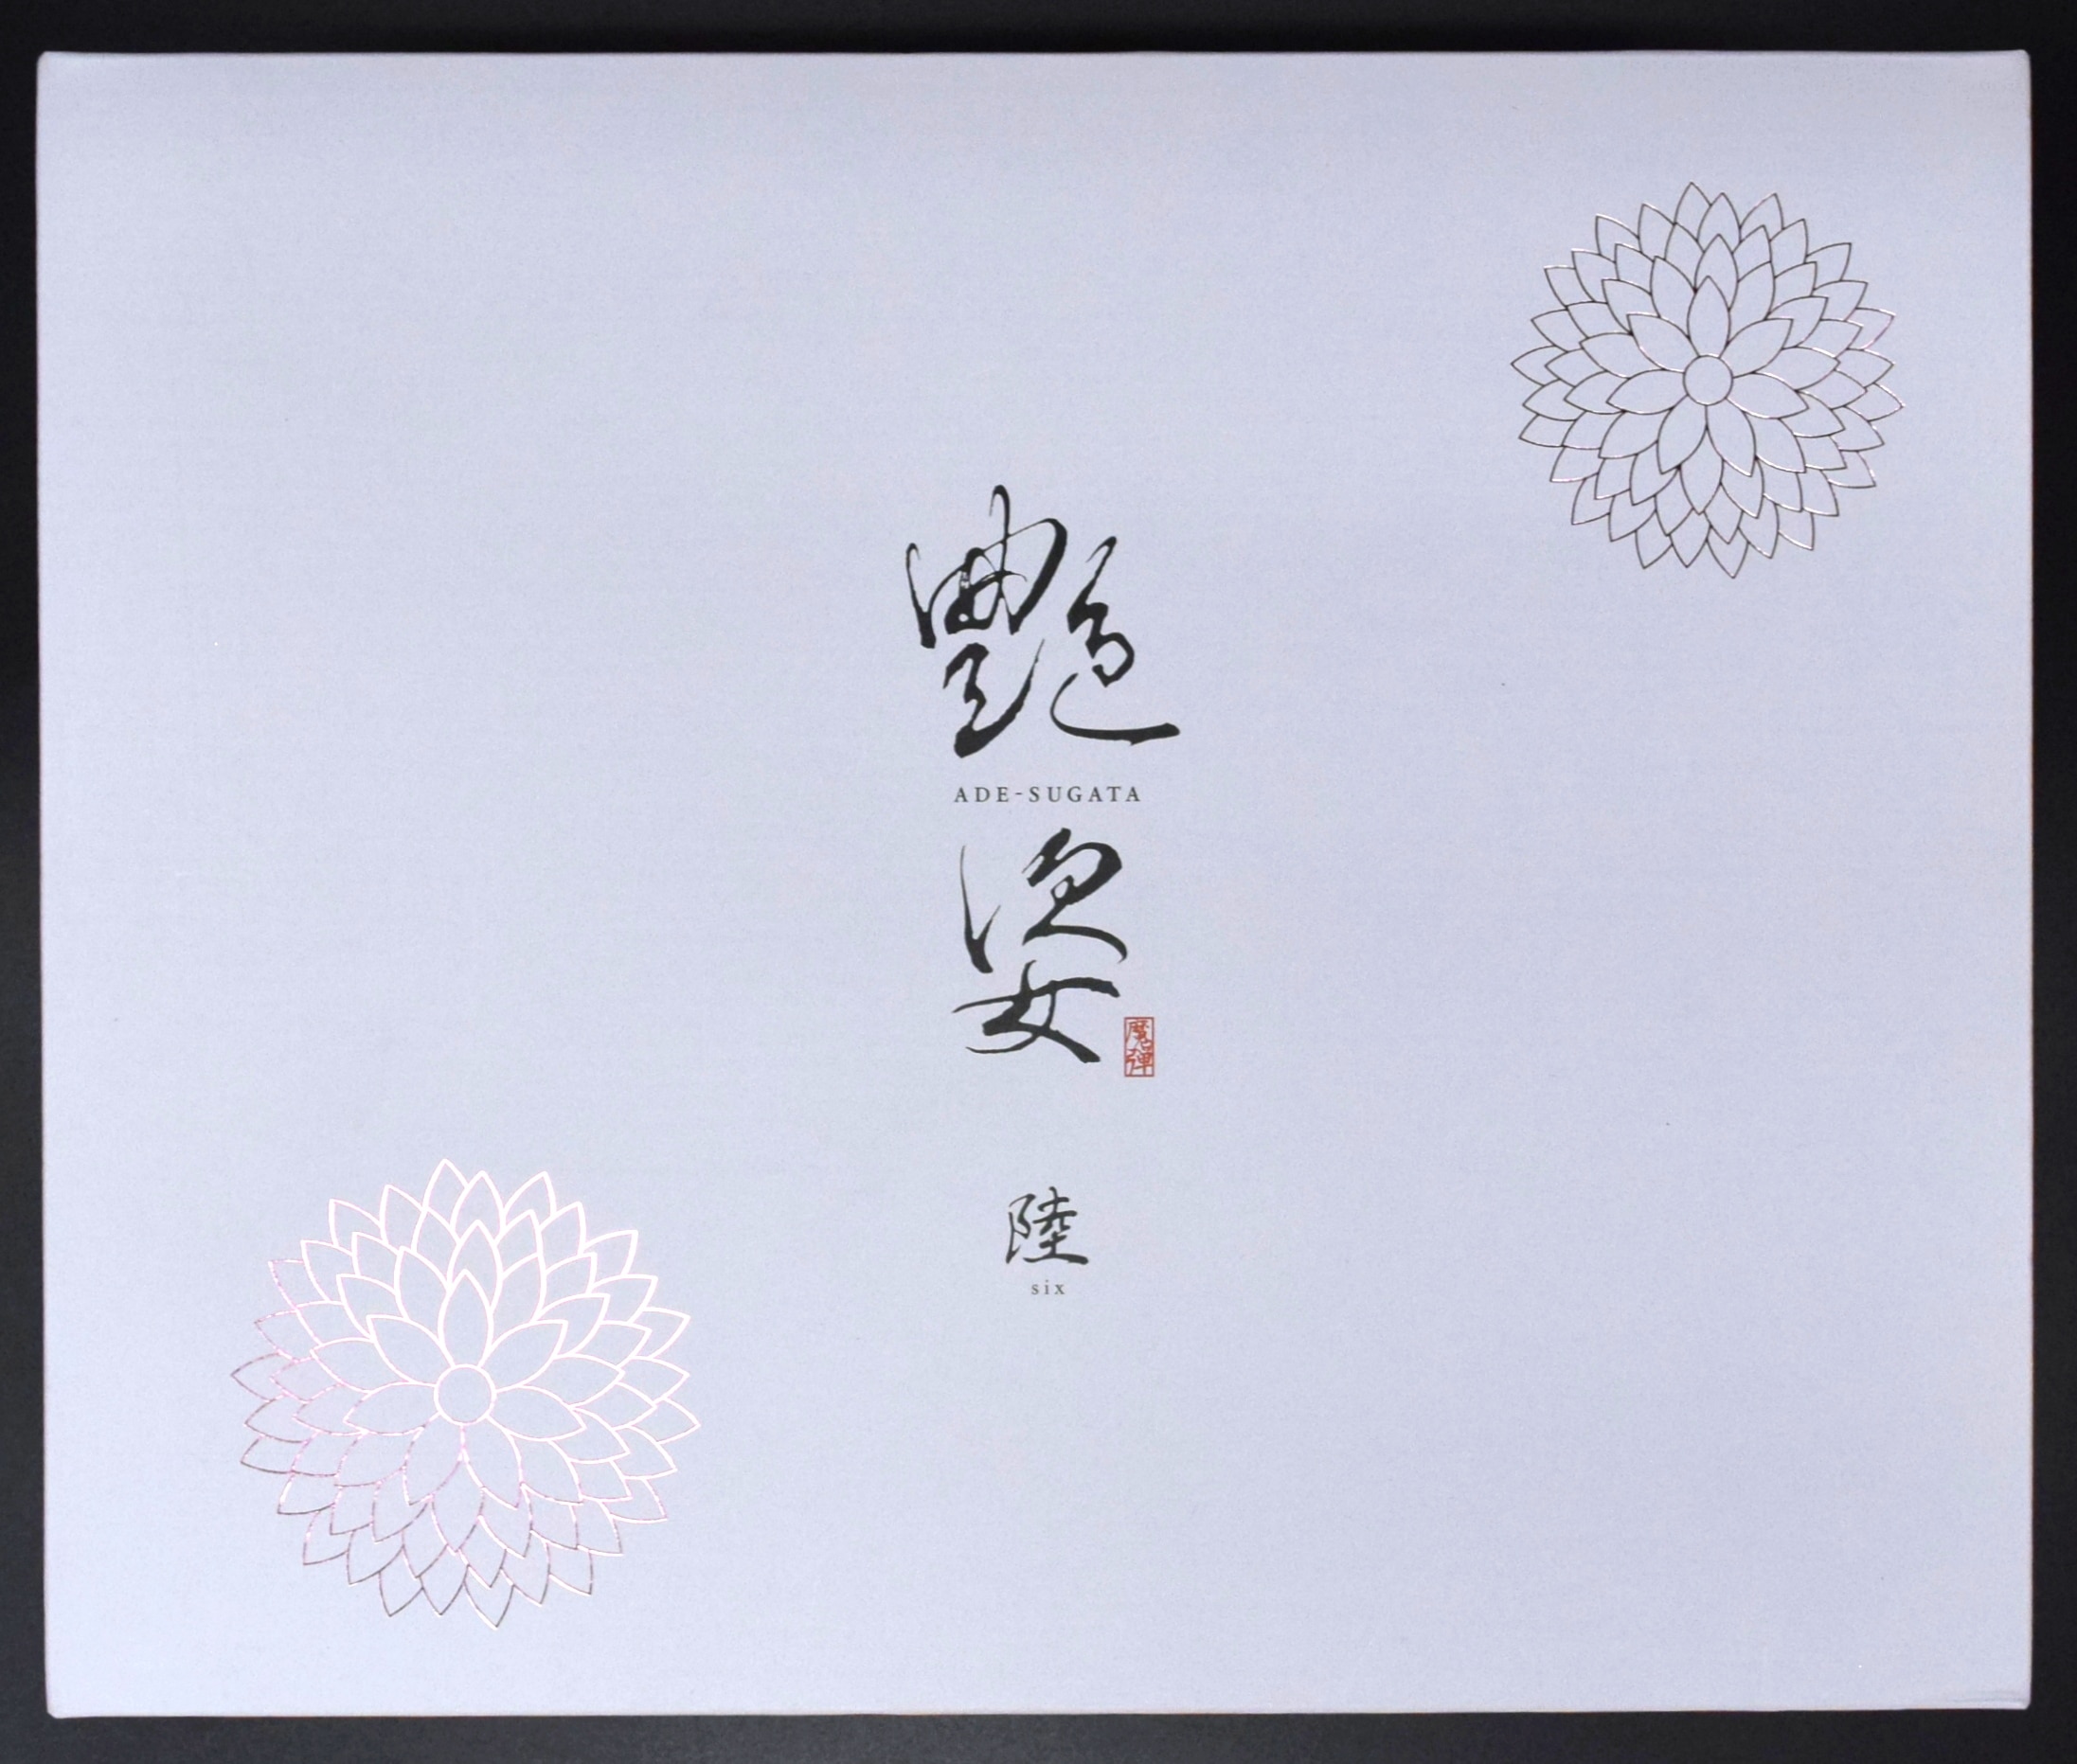 艶
ADE-SUGATA
姿
魔弾
陸
six